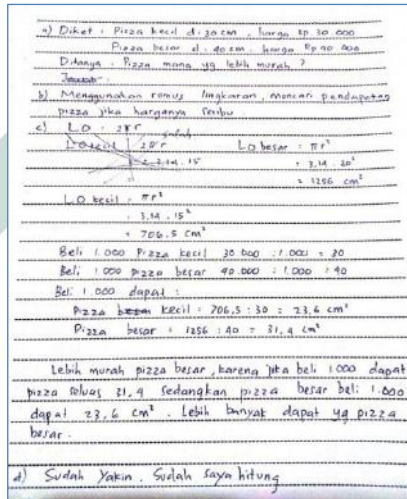 a) Diket : Pizza kecil d : 30 cm , harga Rp. 30 000
Pizza besar d : 40 cm . harga Rp 40 000
Ditanya : Pizza mana yg lebih murah ?
Jawab :
b) Menggunakan rumus lingkaran , mencari pendapatan
pizza jika harganya seribu .
c) L O = 2πr salah
L O kecil = 2πr L O besar = πr²
= 2 . 3,14 . 15 = 3,14 . 20²
= 1256 cm²
L O kecil = πr²
= 3,14 . 15²
= 706,5 cm²
Beli 1.000 Pizza kecil 30 000 : 1.000 = 30
Beli 1.000 pizza besar 40.000 : 1.000 = 40
Beli 1.000 dapat :
Pizza kecil = 706,5 : 30 = 23,6 cm²
Pizza besar = 1256 : 40 = 31,4 cm²
Lebih murah pizza besar , karena jika beli 1.000 dapat
pizza seluas 31,4 sedangkan pizza besar beli 1.000
dapat 23,6 cm² . Lebih banyak dapat yg pizza
besar .
d) Sudah Yakin . Sudah saya hitung